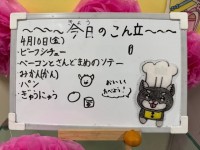 ～～～～今日のこん立～～～
きょう
4月10日(金)
・ビーフシチュー
・ベーコンとさんどまめのソテー
・みかん(かん)
・パン
・ぎゅうにゅう
おいしい